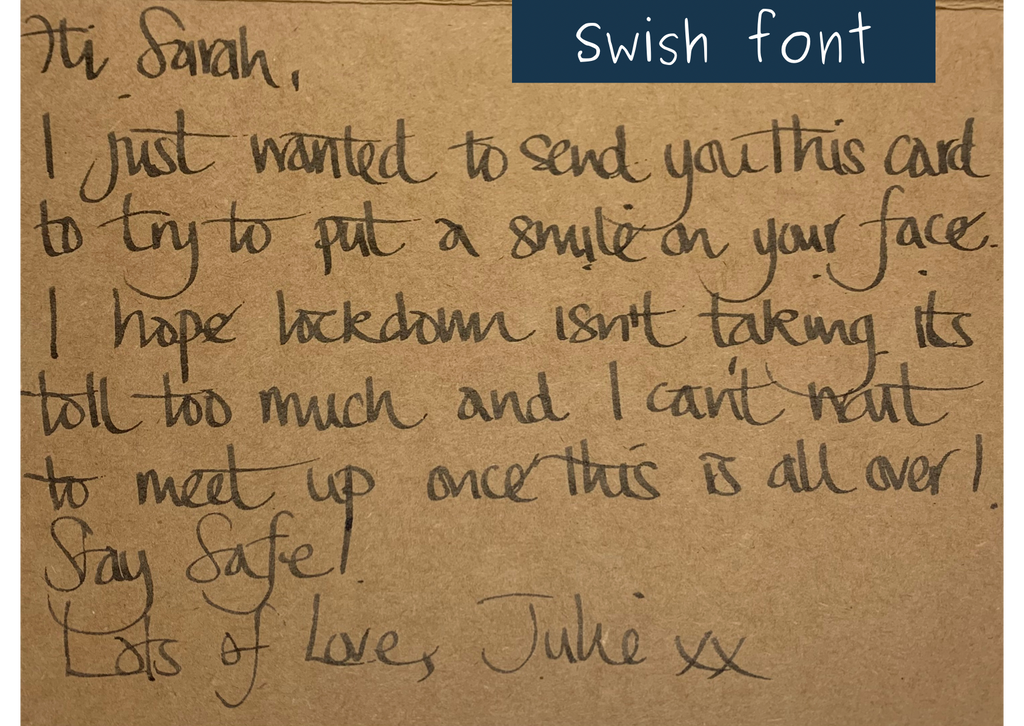 swish font
Hi Sarah,
I just wanted to send you this card
to try to put a smile on your face.
I hope lockdown isn't taking its
toll too much and I can't wait
to meet up once this is all over!
Stay Safe!
Lots of Love, Julie xx